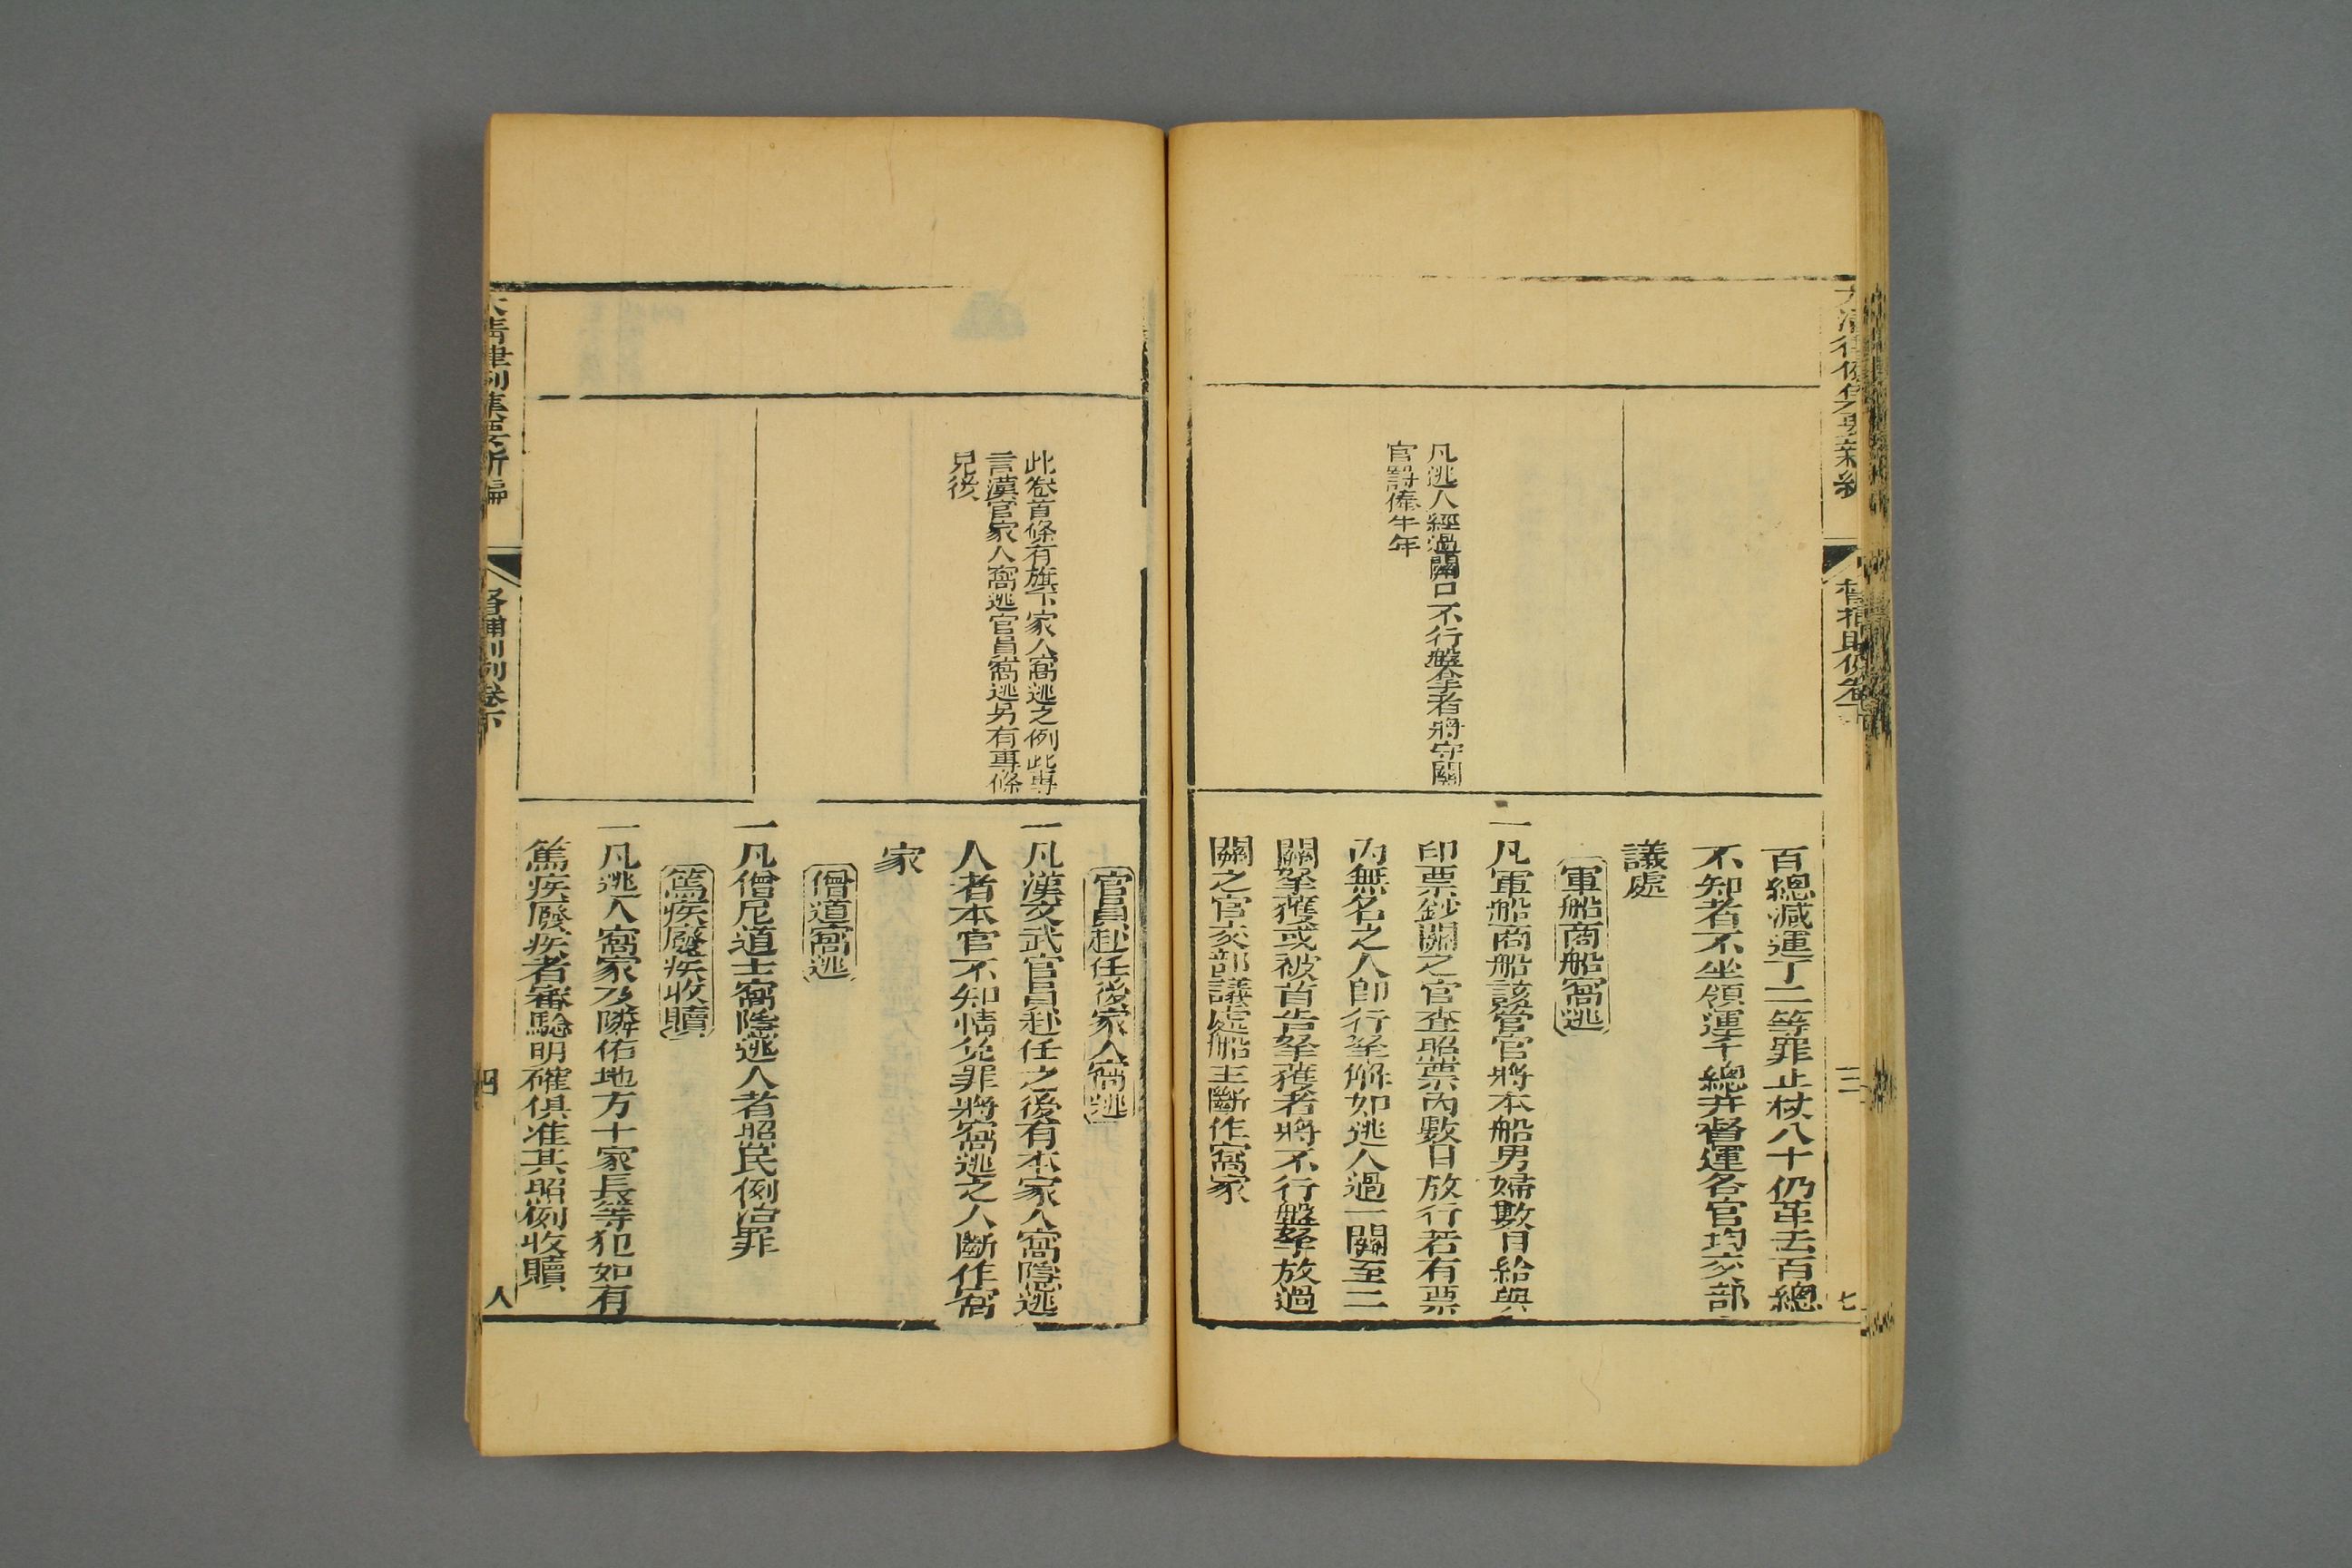 凡逃人經過關口不行盤拿者將守關
官罸俸半年
百總減運丁二等罪止杖八十仍革去百總
不知者不坐領運千總并督運各官均交部
議處
軍船商船窩逃
一凡軍船商船該管官將本船男婦數目給與
印票鈔關之官查照票內數目放行若有票
內無名之人卽行拏解如逃人過一關至二
關拏獲或被首告拏獲者將不行盤拏放過
關之官交部議處船主斷作窩家
三
七
此卷首條有旗下家人窩逃之例此專
言漢官家人窩逃官員窩逃另有專條
見後
官員赴任後家人窩逃
一凡漢文武官員赴任之後有本家人窩隱逃
人者本官不知情免罪將窩逃之人斷作窩
家
僧道窩逃
一凡僧尼道士窩隱逃人者照民例治罪
篤疾廢疾收贖
一凡逃人窩家及隣佑地方十家長等犯如有
篤疾廢疾者審驗明確俱准其照例收贖
大清律例集要新編
督捕則例卷下
四
八